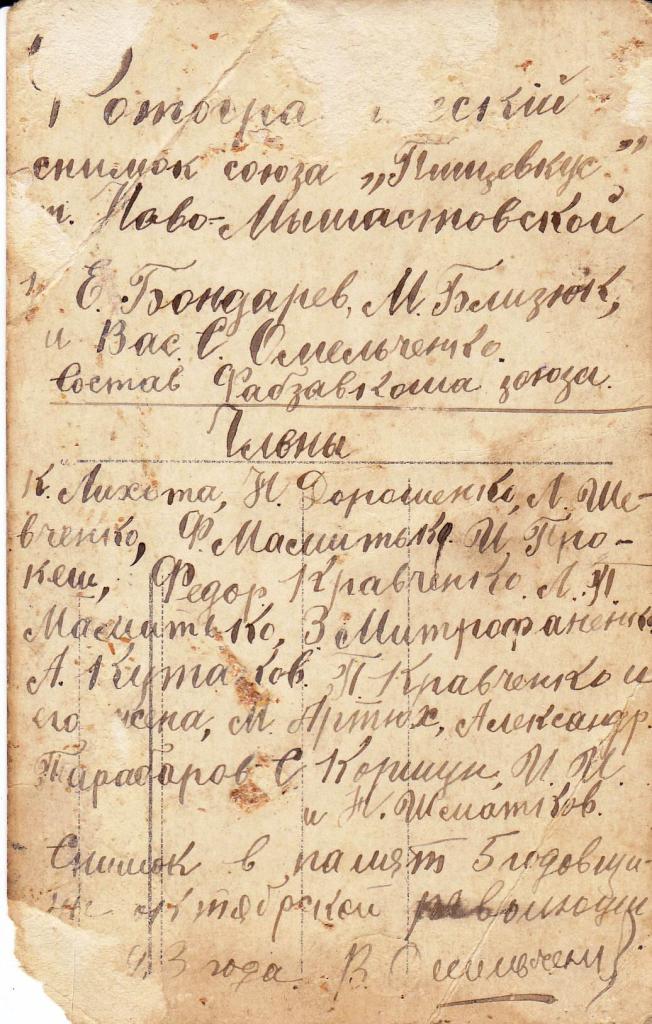 снимок союза „Пищевкус"
Ново-Мышастовской
Е. Бондарев, М. Близюк,
и Вас. С. Омельченко.
Состав Фабзавкома союза.
Члены
К. Лихота, Н. Дорошенко, Л. Ше-
вченко, Ф. Масмитько И. Про-
кеш, Федор Кравченко Л. П
Масмитько, З Митрофаненко
А. П Кравченко и
его жена, М. Артюх, Александр.
Тарабаров С Коршун, И. И.
и Н. Шматков.
Снимок в памят 5 годовщи-
октябрской революции
года. В. Омельченко